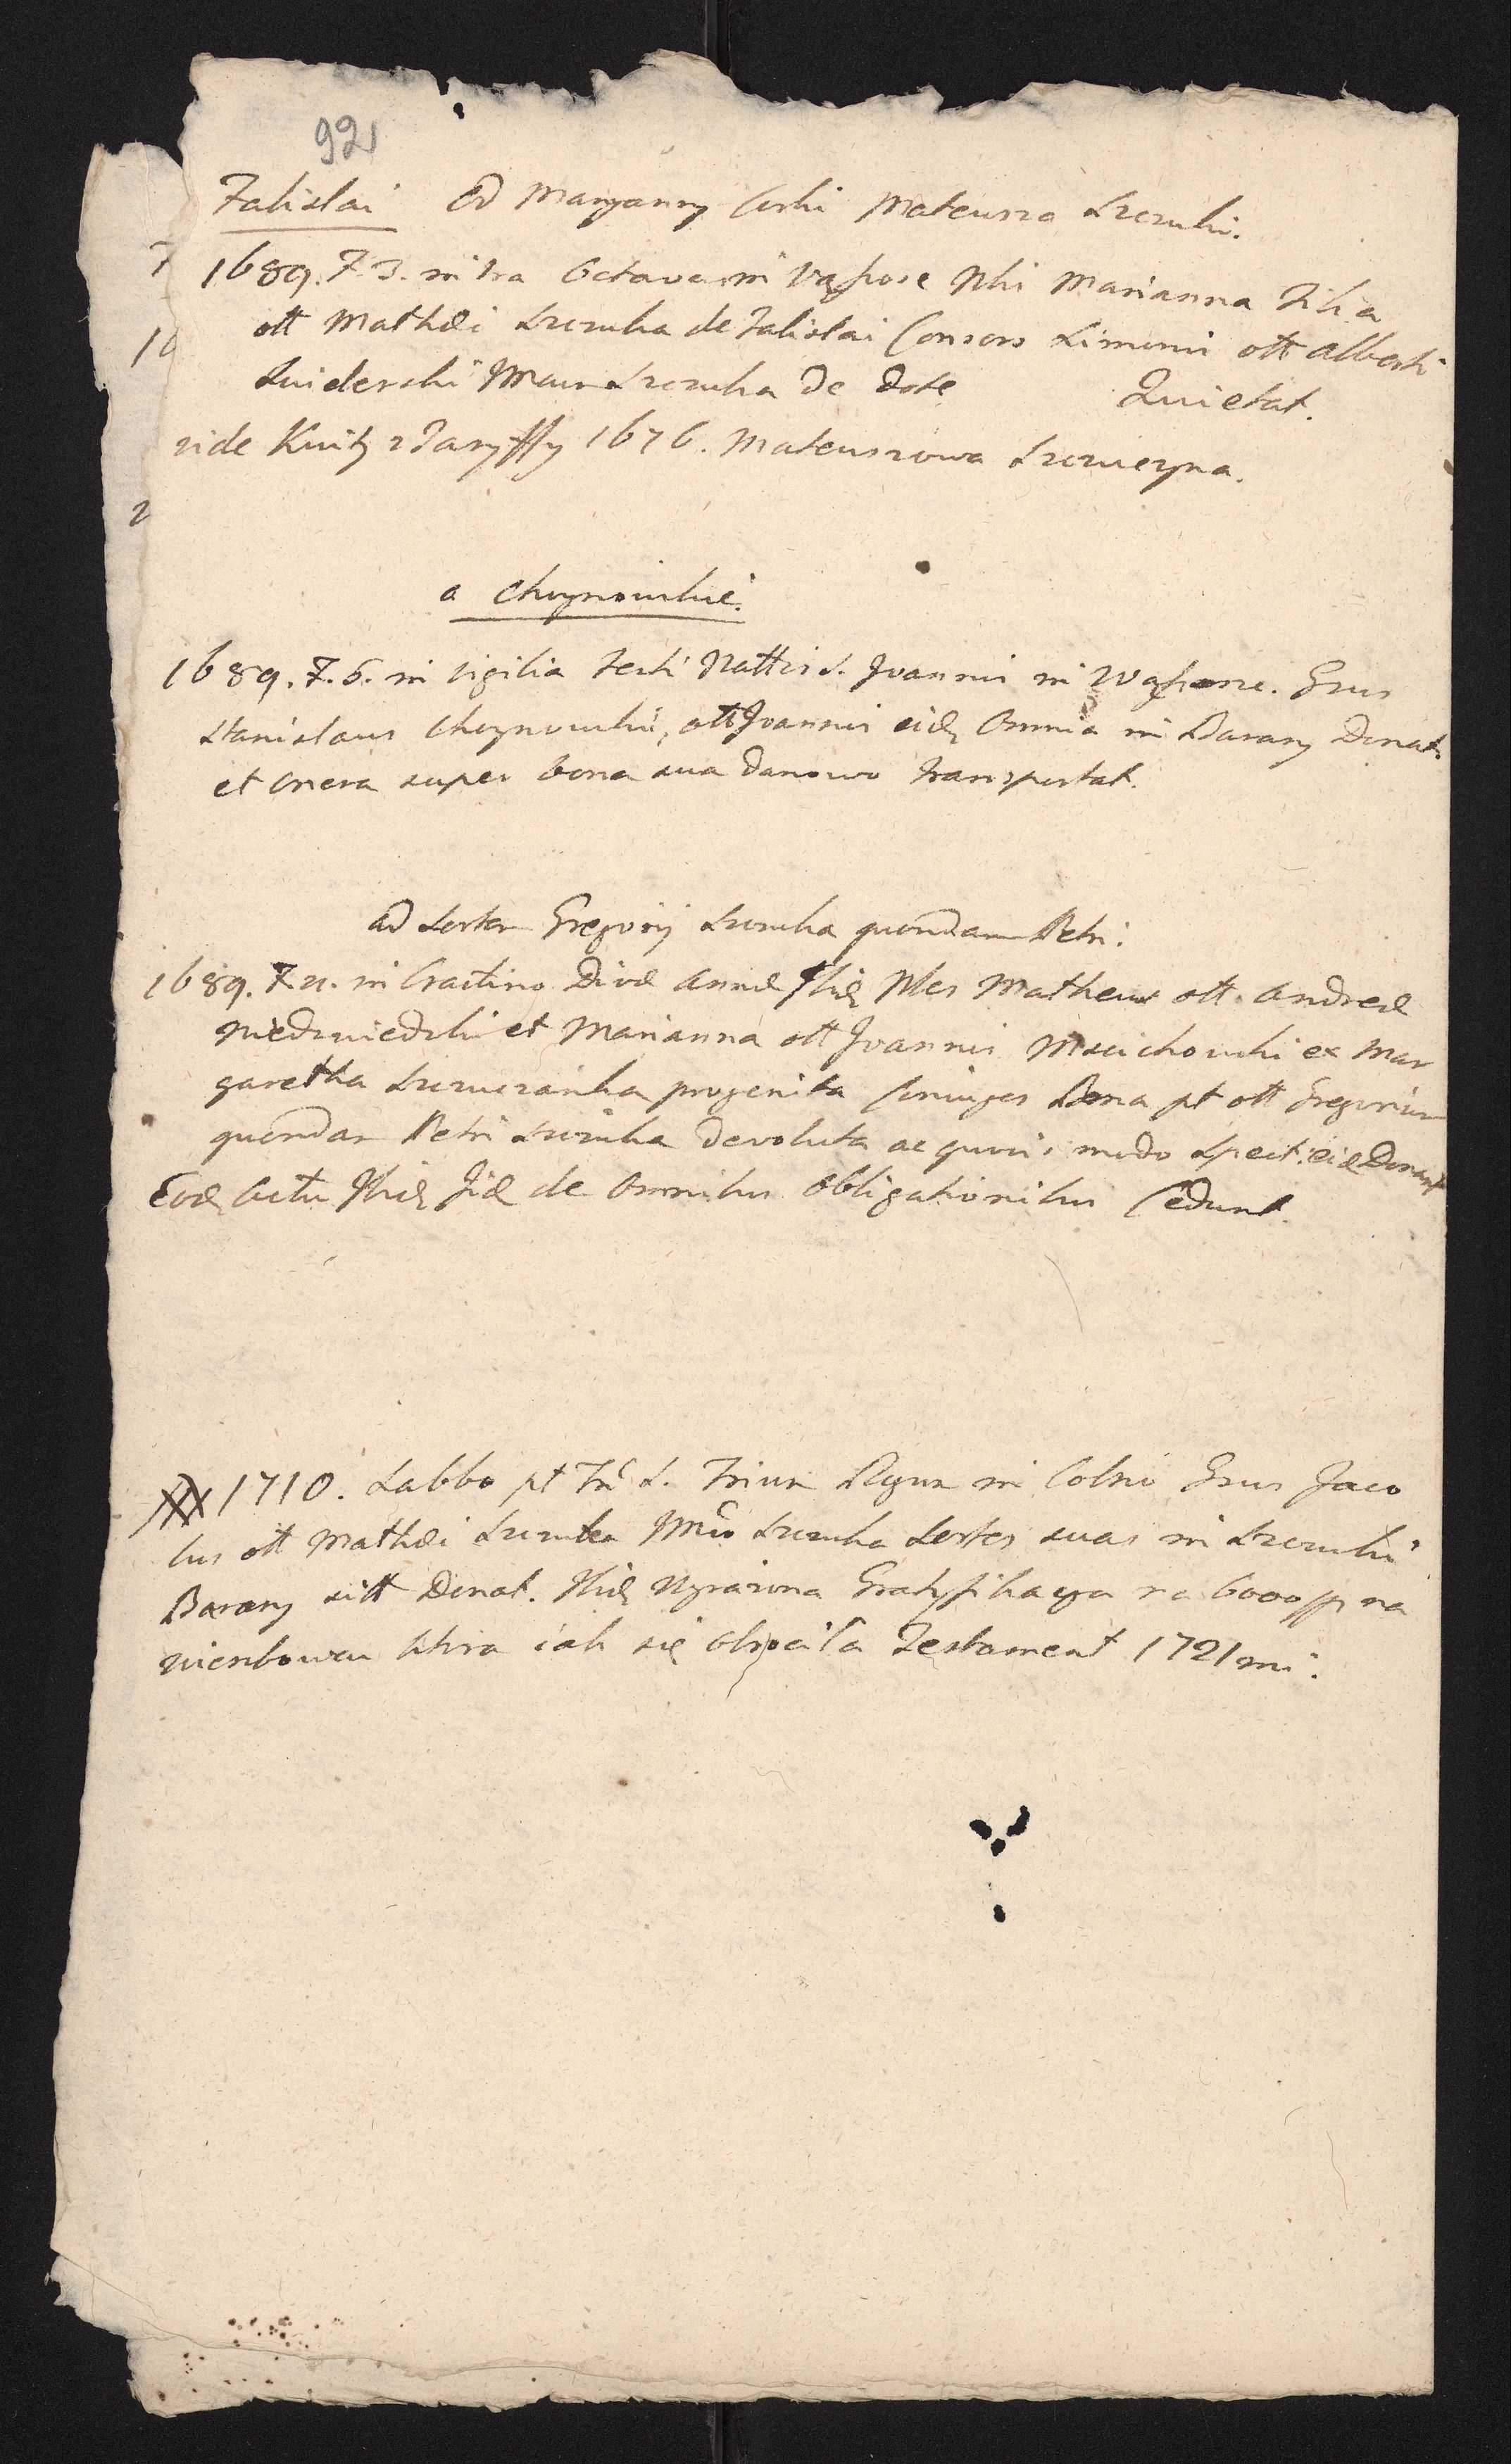 92
Falislai Od Maryanny Corki Mateusza Szczuki.
1689. F. 3. intra Octavam in Wąsosze Nbi Marianna Filia
olt Mathæi Szczuka de Falislai Consors Simonis olt Alberti
Swiderski Mcum Szczuka de dote Quietat.
vide Kwity z Taryffy 1676. Mateuszowa Szczuczyna.
a Choynowskie.
1689. F. 6. in vigilia Festi Nattis S. Joannis in Wąsosze. Grus
Stanislaus Choynowski, olt Joannis eidę Omnia in Barany Donat.
et onera super bona sua Danowo transportat.
ad Sortem Gregorij Szczuka quondam Petri.
1689. F. 21. in Crastino Divæ Annæ Ibidę Nles Matheus olt. Andreæ
Niedzwiedzki et Marianna olt Joannis Mscichowski ex Mar
garetha Szczuczanka progenita Coniuges Bona pt olt Gregorium
quondam Petri Szczuka devoluta ac quovis modo Spect. eidę Donant
Eodę Actu Ibidę Jidę de Omnibus obligationibus Cedunt.
1710. Sabbo pt Fm S. Trium Regum in Colno Grus Jaco
bus olt Mathæi Szczuka Mco Szczuka Sortes suas in Szczuki
Barany sitt Donat. Ibidę Wyrazona Gratyfikacya na 6000 fp na
Wierzbowcu ktora iak się obrociła Testament 1721 mi.